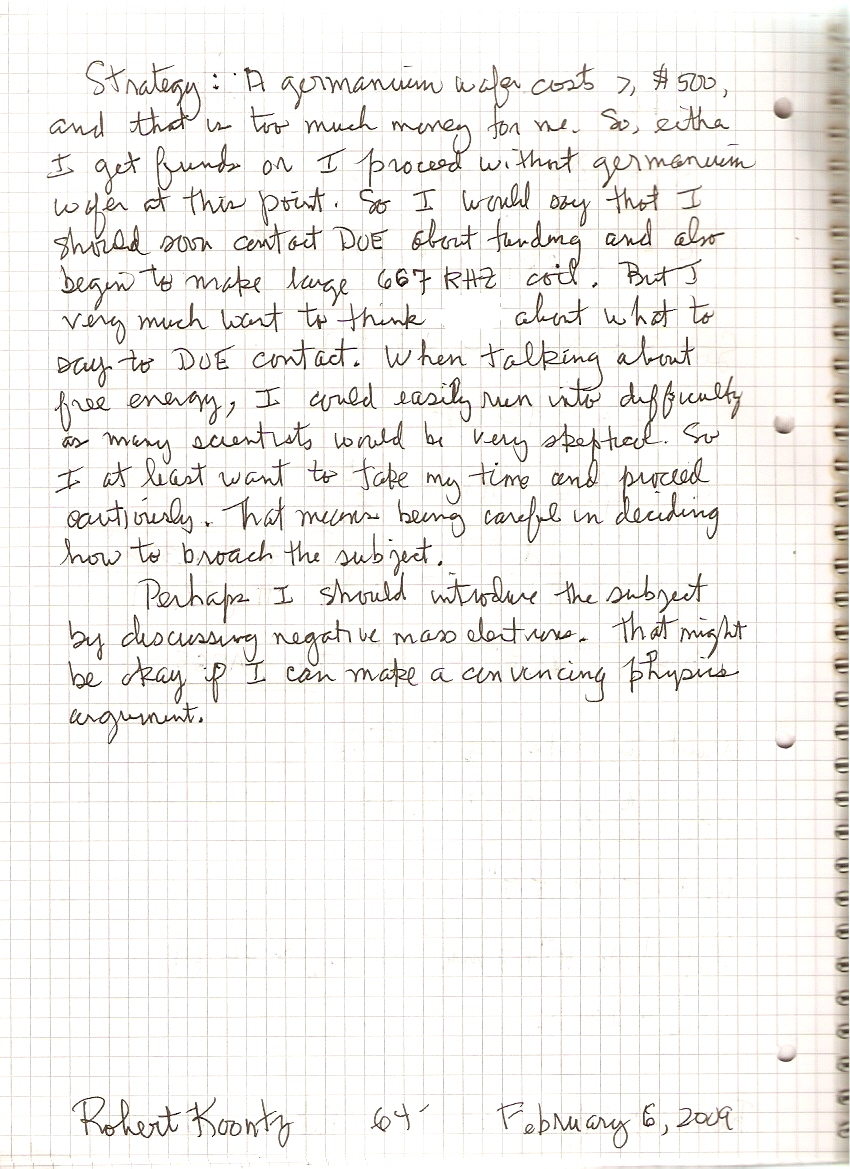 Strategy: A germanium wafer costs ≥ $500,
and that is too much money for me. So, either
I get funds or I proceed without germanium
wafer at this point. So I would say that I
should soon contact DOE about funding and also
begin to make large 667 KHZ coil. But I
very much want to think about what to
say to DOE contact. When talking about
free energy, I could easily run into difficulty
as many scientists would be very skeptical. So
I at least want to take my time and proceed
cautiously. That means being careful in deciding
how to broach the subject.
Perhaps I should introduce the subject
by discussing negative mass electrons. That might
be okay if I can make a convincing physics
argument.
Robert Koontz 64 February 6, 2009